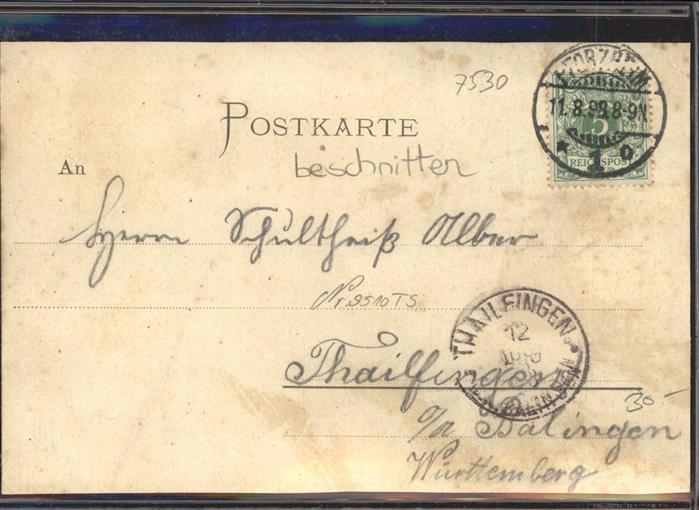 7530
PFORZHEIM
11.8.99.8-9N
* 1 c
5
REICHSPOST
POSTKARTE
beschnitten
An
Herrn Schultheiß Alber
Nr. 9510 TS
THAILFINGEN
12
Thailfingen
30-
o/a Balingen
Württemberg